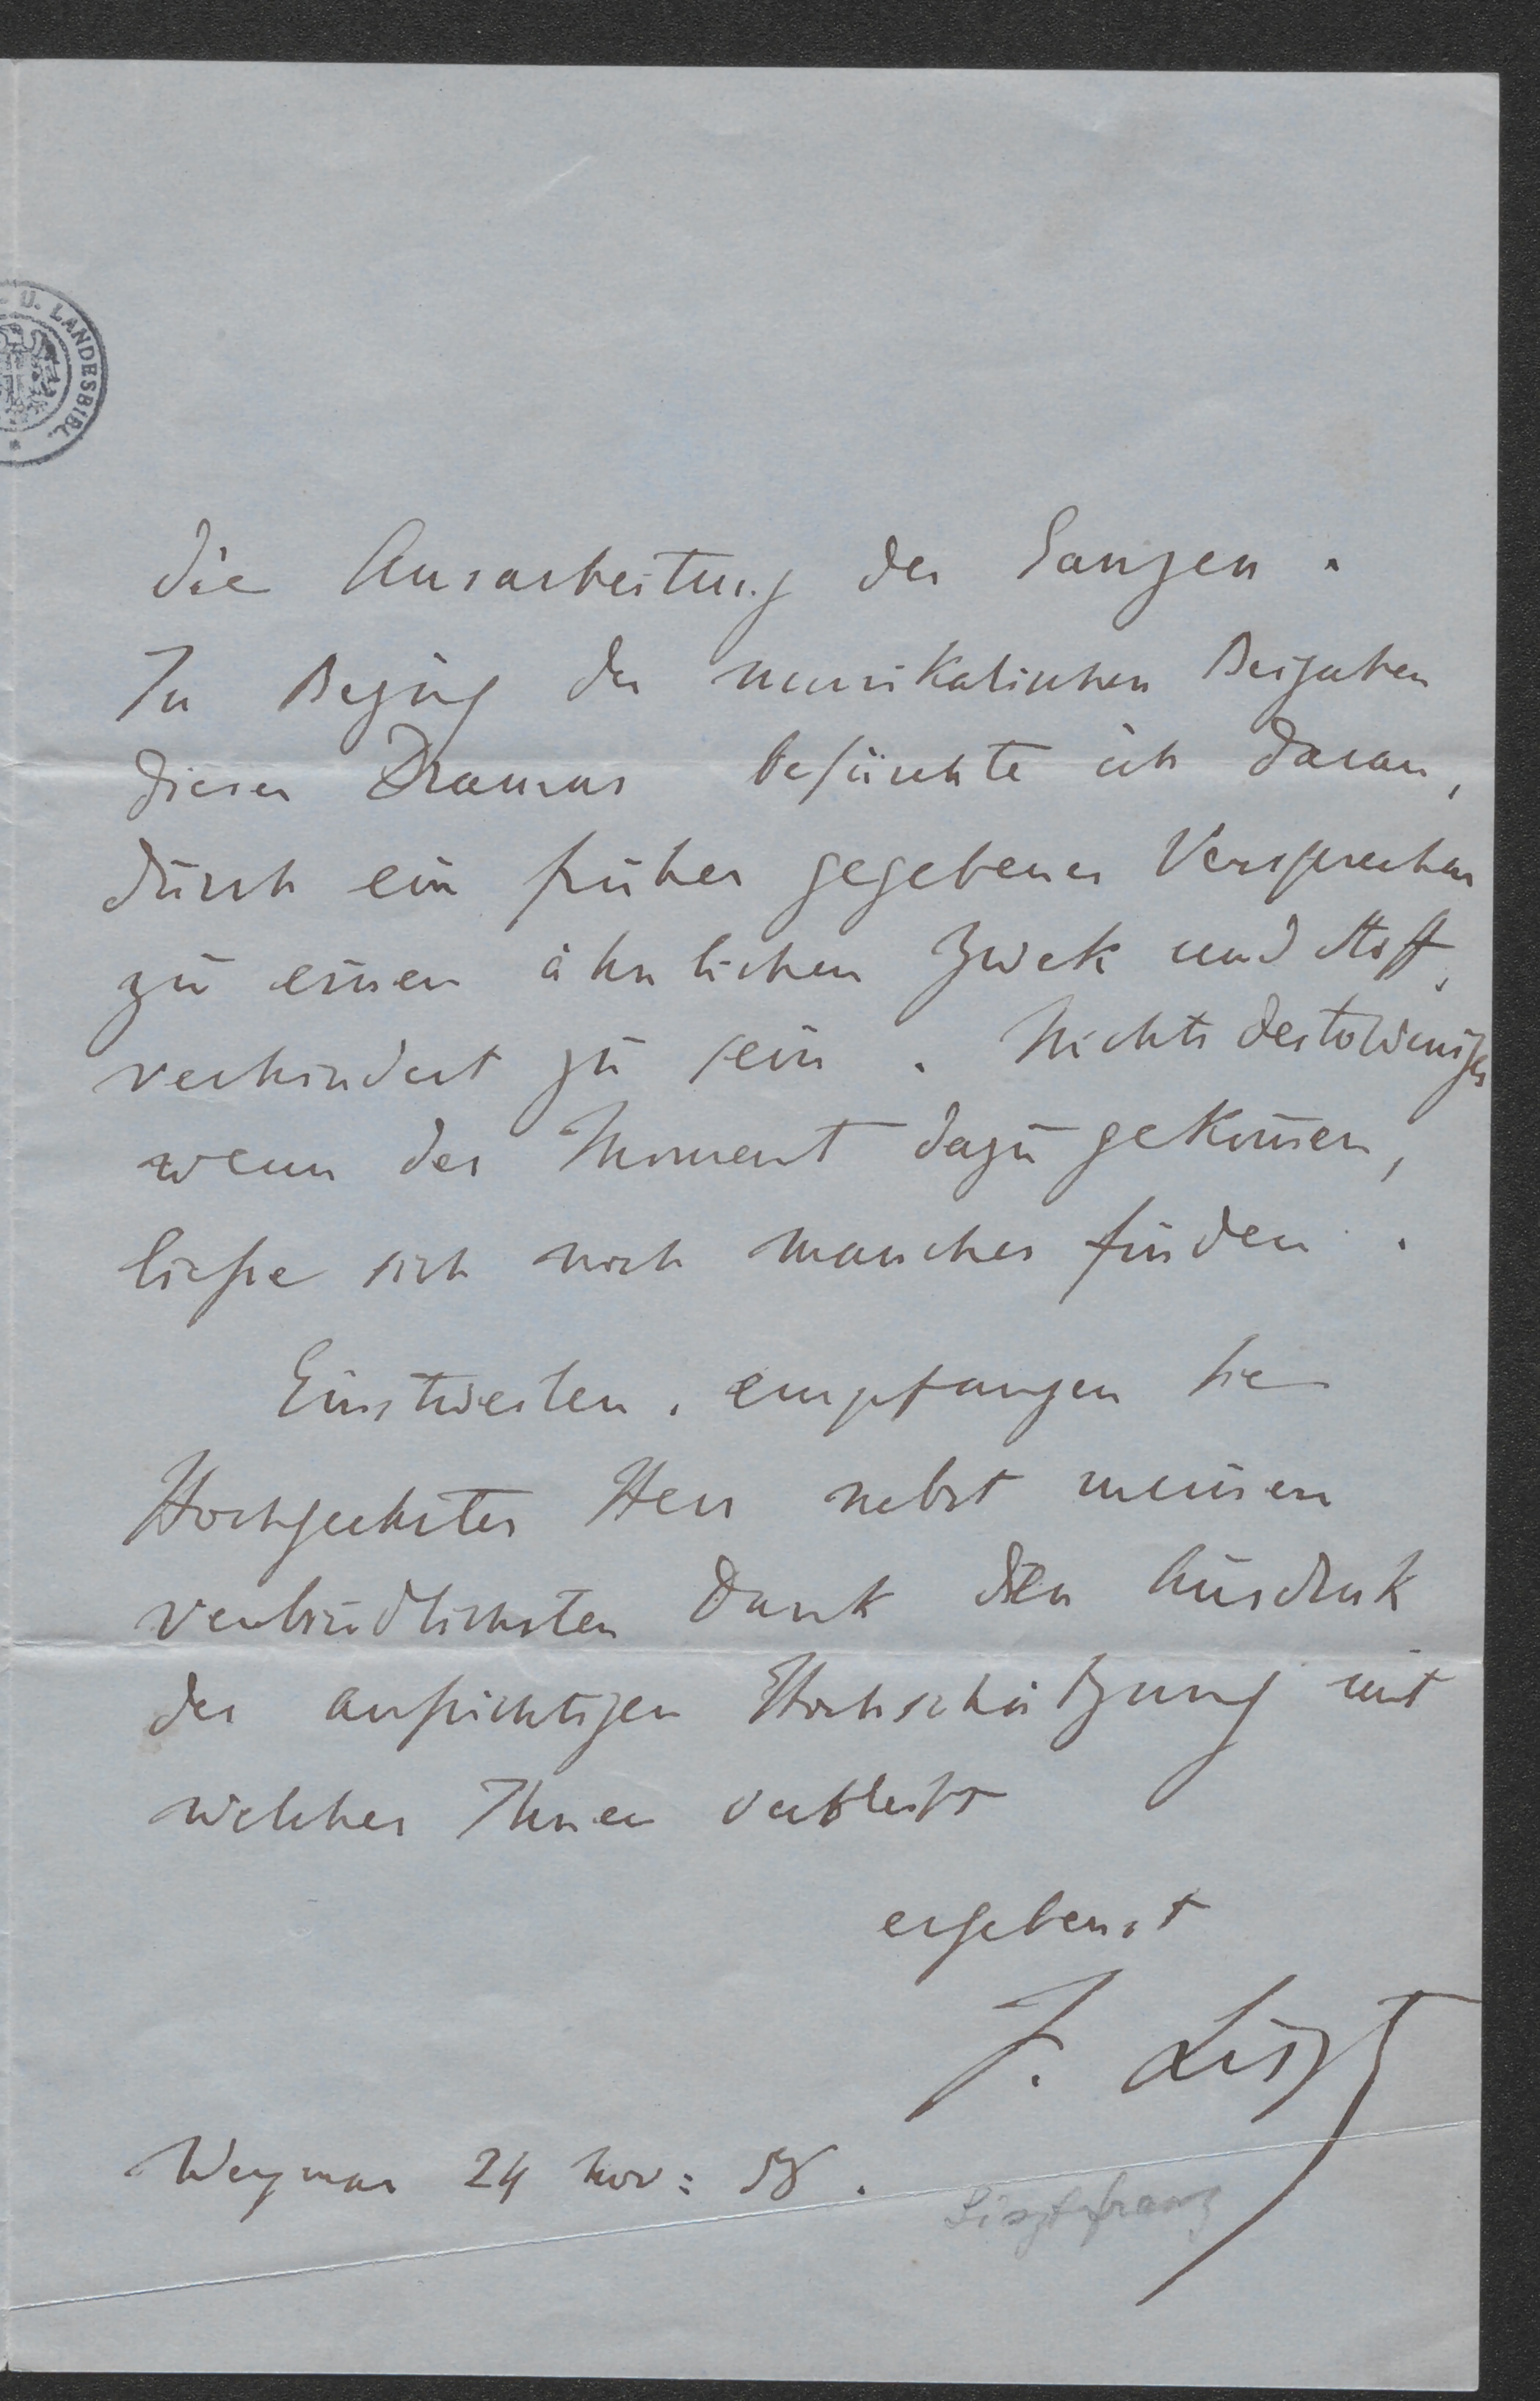 U. LANDESBIBL.
die Ausarbeitung des Ganzen.
In Bezug der musikalischen Beigaben
dieses Dramas befürchte ich daran,
durch ein früher gegebenes Versprechen
zu einen ähnlichen Zwek und Stoff,
verhindert zu sein. Nichts destoweniger
wenn der Moment dazu gekom̄en,
ließe sich noch manches finden.
Einstweilen, empfangen Sie
Hochgeehrter Herr nebst meinen
verbindlichsten Dank den Ausdruk
der aufrichtigen Hochschätzung mit
welcher Ihnen verbleibt
ergebenst
F. Liszt
Weymar 24 Nov: 58.
Liszt Franz